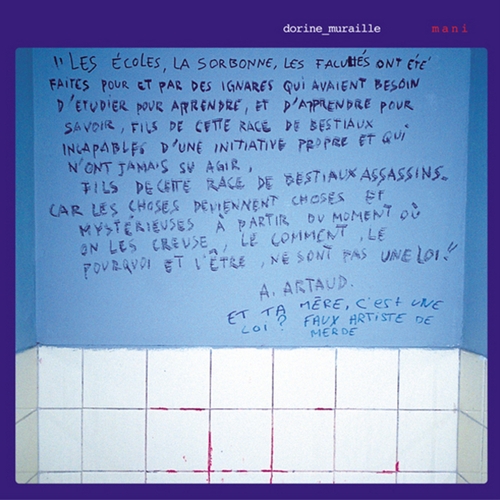 dorine_muraille mani
"LES ÉCOLES, LA SORBONNE, LES FACULTÉS ONT ÉTÉ
FAITES POUR ET PAR DES IGNARES QUI AVAIENT BESOIN
D'ETUDIER POUR APPRENDRE, ET D'APPRENDRE POUR
SAVOIR, FILS DE CETTE RACE DE BESTIAUX
INCAPABLES D'UNE INITIATIVE PROPRE ET QUI
N'ONT JAMAIS SU AGIR,
FILS DE CETTE RACE DE BESTIAUX ASSASSINS.
CAR LES CHOSES DEVIENNENT CHOSES ET
MYSTÉRIEUSES À PARTIR DU MOMENT OÙ
ON LES CREUSE, LE COMMENT, LE
POURQUOI ET L'ÊTRE, NE SONT PAS UNE LOI!"
A. ARTAUD.
ET TA MÈRE, C'EST UNE
LOI? FAUX ARTISTE DE
MERDE